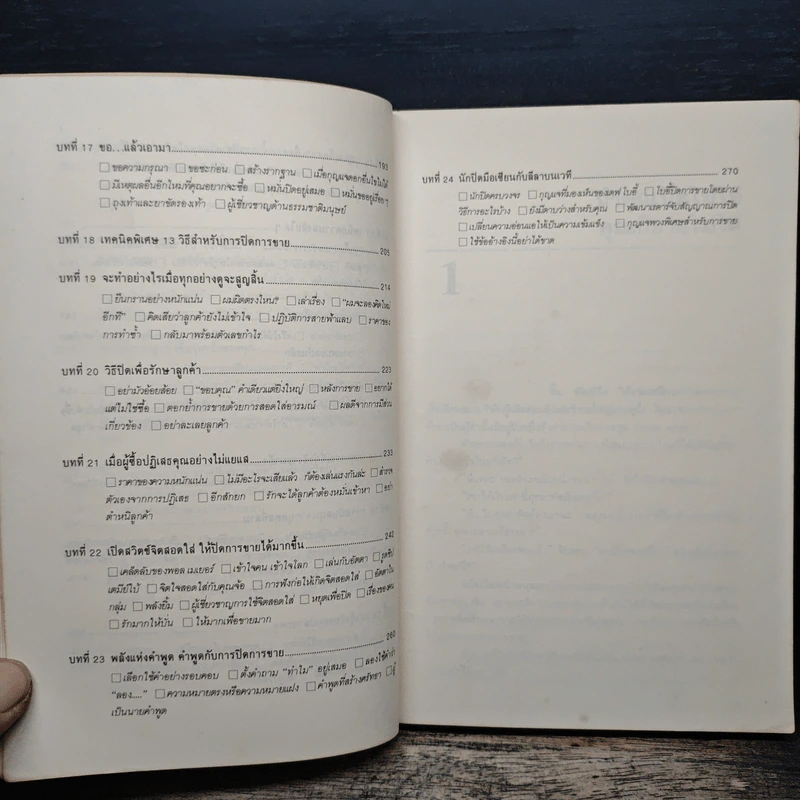 บทที่ 17 ขอ...แล้วเอามา 193
☐ ขอความกรุณา ☐ ขอซะก่อน ☐ สร้างรากฐาน ☐ เมื่อกุญแจดอกอื่นไขไม่ได้
☐ มีเหตุผลอื่นอีกไหมที่คุณอยากจะซื้อ ☐ หมั่นปิดอยู่เสมอ ☐ หมั่นขออยู่เรื่อย ๆ
☐ ถุงเท้าและยาขัดรองเท้า ☐ ผู้เชี่ยวชาญด้านธรรมชาติมนุษย์
บทที่ 18 เทคนิคพิเศษ 13 วิธีสำหรับการปิดการขาย 205
บทที่ 19 จะทำอย่างไรเมื่อทุกอย่างดูจะสูญสิ้น 214
☐ ยืนกรานอย่างหนักแน่น ☐ ผมผิดตรงไหน? ☐ เล่าเรื่อง ☐ "ผมจะลองคิดใหม่
อีกที" ☐ คิดเสียว่าลูกค้ายังไม่เข้าใจ ☐ ปฏิบัติการสายฟ้าแลบ ☐ ราคาของ
การทำซ้ำ ☐ กลับมาพร้อมตัวเลขกำไร
บทที่ 20 วิธีปิดเพื่อรักษาลูกค้า 223
☐ อย่ามัวอ้อยส้อย ☐ "ขอบคุณ" คำเดียวแต่ยิ่งใหญ่ ☐ หลังการขาย ☐ อยากได้
แต่ไม่ใช่ซื้อ ☐ ตอกย้ำการขายด้วยการสอดใส่อารมณ์ ☐ ผลดีจากการมีส่วน
เกี่ยวข้อง ☐ อย่าละเลยลูกค้า
บทที่ 21 เมื่อผู้ซื้อปฏิเสธคุณอย่างไม่แยแส 233
☐ ราคาของความหนักแน่น ☐ ไม่มีอะไรจะเสียแล้ว ก็ต้องเล่นแรงกันล่ะ ☐ สำรวจ
ตัวเองจากการปฏิเสธ ☐ อีกสักยก ☐ รักจะได้ลูกค้าต้องหมั่นเข้าหา ☐ อย่า
ตำหนิลูกค้า
บทที่ 22 เปิดสวิตช์จิตสอดใส่ ให้ปิดการขายได้มากขึ้น 242
☐ เคล็ดลับของพอล เมเยอร์ ☐ เข้าใจคน เข้าใจโลก ☐ เล่นกับอัตตา
เตมีย์ใบ้ ☐ จิตใจสอดใส่กับคุณจ้อ ☐ การฟังก่อให้เกิดจิตสอดใส่ ☐ อัตตาใน
กลุ่ม ☐ พลังยิ้ม ☐ ผู้เชี่ยวชาญการใช้จิตสอดใส่ ☐ หยุดเพื่อปิด ☐ เรื่องของคน
☐ รักมากให้บัน ☐ ให้มากเพื่อขายมาก
บทที่ 23 พลังแห่งคำพูด คำพูดกับการปิดการขาย 260
☐ เลือกใช้คำอย่างรอบคอบ ☐ ตั้งคำถาม "ทำไม" อยู่เสมอ ☐ ลองใช้คำว่า
"ลอง...." ☐ ความหมายตรงหรือความหมายแฝง ☐ คำพูดที่สร้างศรัทธา ☐ ผู้
เป็นนายคำพูด
บทที่ 24 นักปิดมือเซียนกับลีลาบนเวที 270
☐ นักปิดครบวงจร ☐ กุญแจที่มองเห็นของเดฟ โบอี้ ☐ โบอี้ปิดการขายโดยผ่าน
วิธีการอะไรบ้าง ☐ ยังมีดาบว่างสำหรับคุณ ☐ พัฒนาเรดาร์จับสัญญาณการปิด
☐ เปลี่ยนความอ่อนแอให้เป็นความเข้มแข็ง ☐ กุญแจพวงพิเศษสำหรับการขาย
☐ ใช้ข้ออ้างอิงนี้อย่าได้ขาด
1